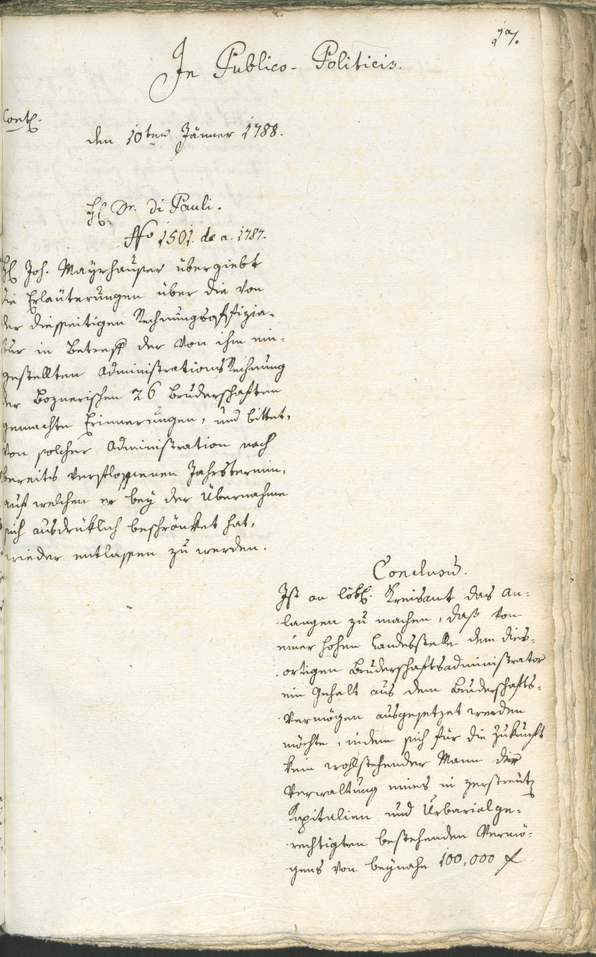 17.
In Publico-Politicis.
Cont.
den 10ten Jänner 1788.
H. Dr. di Pauli.
No 1501. de a. 1787.
H. Joh. Mayrhauser übergiebt
die Erläuterungen über die von
der diesseitigen Rechnungsoffizia-
tur in Betreff der von ihm ein-
gestellten Administrations Rechnung
der Boznerischen 26 Bruderschaften
gemachte Erinnerungen, und bittet,
von solcher Administration nach
bereits verflossenen Jahrstermin,
auf welchen er bey der Übernahme
sich ausdrüklich beschränket hat,
wieder entlassen zu werden.
Conclusū.
Ist an löbl. Kreisamt das An-
langen zu machen, daß von
einer hohen Landesstelle dem dies-
ortigen Bruderschaftsadministrator
ein Gehalt aus dem Bruderschafts-
vermögen ausgesetzet werden
möchte, indem sich für die Zukunft
kein wohlstehender Mann die
Verwaltung eines in zerstreut
Kapitalien und Urbarialge-
rechtigten bestehenden Vermö-
gens von beynahe 100,000 f